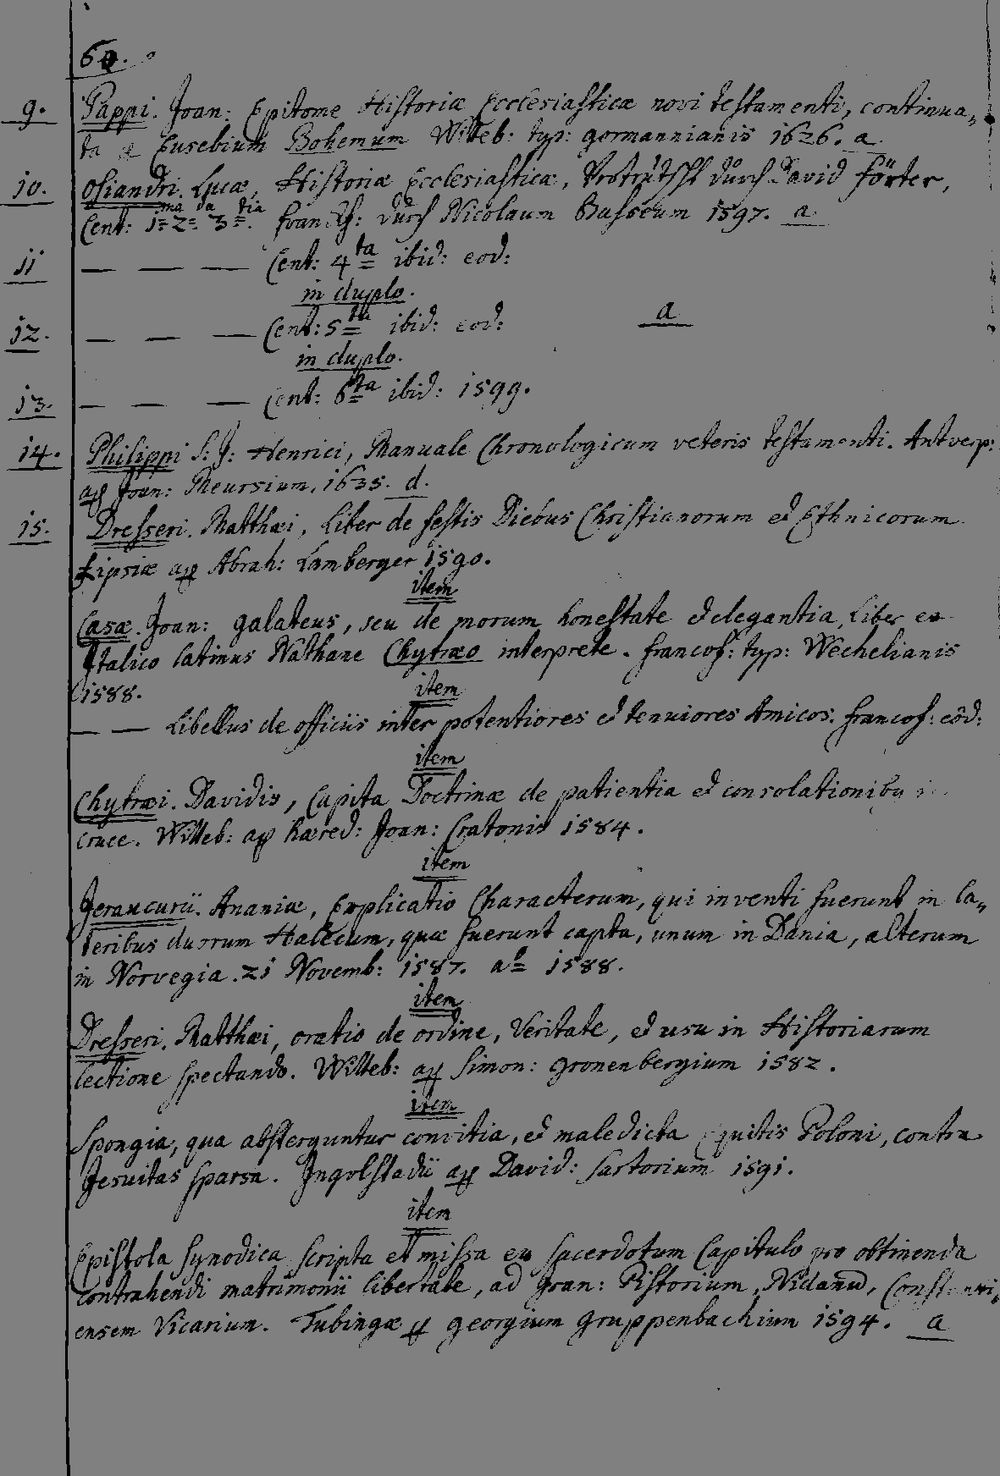 60.
9. Pappi. Joan: Epitome Historiæ Ecclesiasticæ novi testamenti, continua-
ta p Eusebium Bohemum Witteb: typ: gormannianis 1626. a
10. Osiandri Lucæ, Historiæ Ecclesiasticæ, Vertrütscht durch David Förter,
Cent: 1ma 2da 3tia. Franckf: durch Nicolaum Basseum 1597. a
11 — — — Cent: 4ta ibid: eod:
in duplo.
12. — — — Cent: 5ta ibid: eod: a
in duplo.
13. — — — Cent: 6ta ibid: 1599.
14. Philippi S: J: Henrici, Manuale Chronologicum veteris testamenti. Antverp:
ap Joan: Meursium, 1635. d.
15. Dresseri. Matthæi, Liber de festis Diebus Christianorum et Ethnicorum
Lipsiæ ap Abrah: Lamberger 1590.
item
Casæ. Joan: galateus, seu de morum honestate et elegantia, Liber ex
Italico latinus Nathane Chytræo interprete. francof: typ: Wechelianis
1588.
item
— — Libellus de officiis inter potentiores et tenuiores Amicos. francof: eod:
item
Chytræi. Davidis, Capita Doctrinæ de patientia et consolationibu i
cruce. Witteb: ap hæred: Joan: Cratonis 1584.
item
Jeraucurii. Ananiæ, Explicatio Characterum, qui inventi fuerunt in la-
teribus duorum Halecum, quæ fuerunt capta, unum in Dania, alterum
in Norvegia. 21 Novemb: 1587. ao 1588.
item
Dresseri. Matthæi, oratio de ordine, Veritate, et usu in Historiarum
lectione spectando. Witteb: ap Simon: gronenbergium 1582.
item
Spongia, qua absterguntur convitia, et maledicta Equitis Poloni, contra
Jesuitas sparsa. Ingolstadii ap David: Sartorium 1591.
item
Epistola Synodica scripta et missa ex sacerdotum Capitulo pro obtinenda
contrahendi matrimonii libertate, ad Joan: Pistorium, Nidanū, Constanti-
ensem Vicarium. Tubingæ p georgium gruppenbachium 1594. a